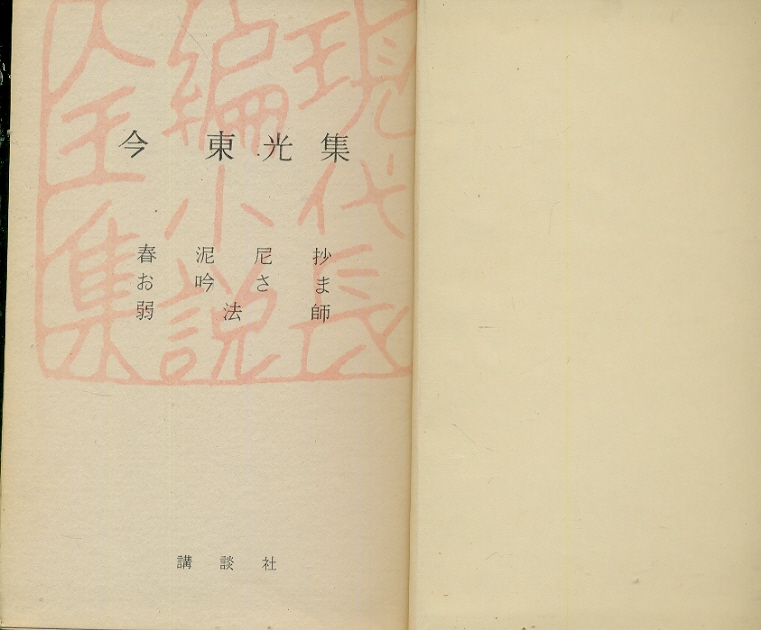 現代長
編小説
全集
今東光集
春泥尼抄
お吟さま
弱法師
講談社